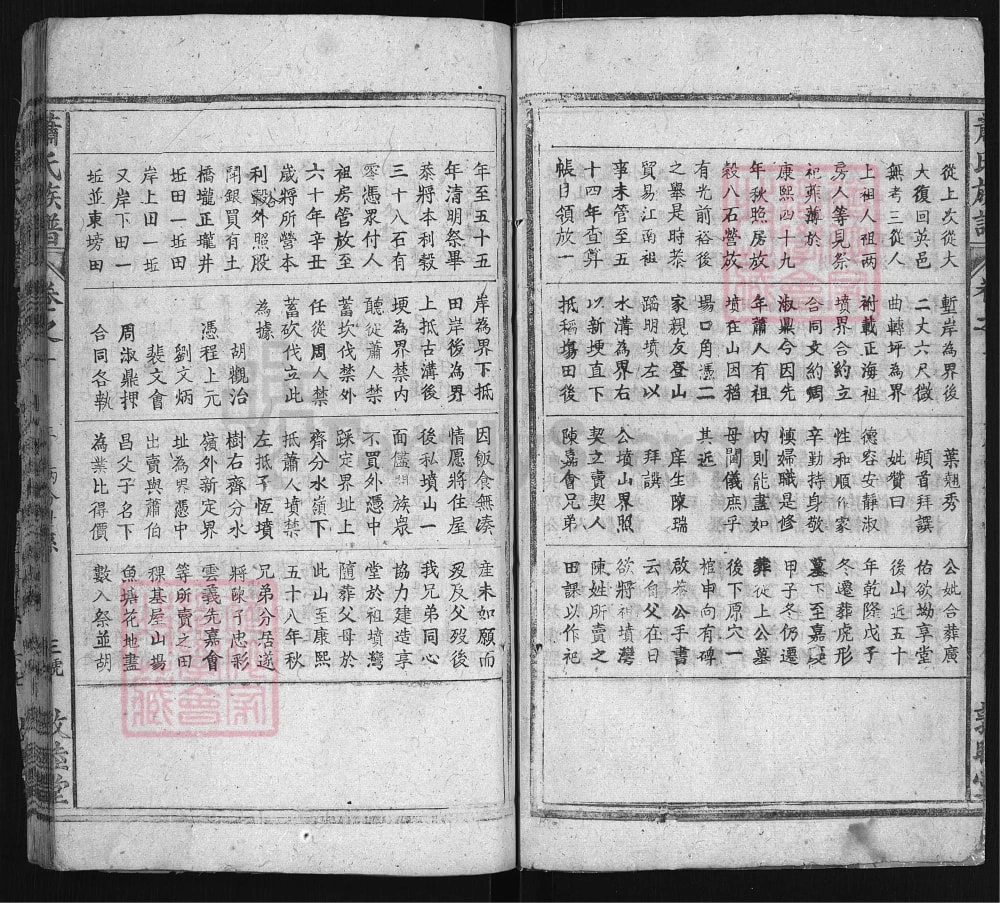 從上次從大
大復回英邑
無考三從人
上祖人祖兩
房人等見祭
祀菲薄於
康熙四十九
年秋照房放
穀八石營放
有光前裕後
之舉是時恭
貿易江南祖
事未管至五
十四年查算
帳目領放一
塹岸為界後
二丈六尺微
曲轉坪為界
祔載正海祖
墳界合約立
合同文約周
淑鼎今因先
年蕭人有祖
墳在山因稻
場口角憑二
家親友登山
踏明墳左以
水溝為界右
以新埂直下
抵稻塲田後
葉翹秀
頓首拜譔
妣贊曰
德容安靜淑
性和順作家
辛勤持身敬
慎婦職是修
內則能盡如
母閫儀庶乎
其近
庠生陳瑞
拜譔
公墳山界照
契立賣契人
陳嘉會兄弟
公妣合葬廣
佑欲坳享堂
後山近五十
年乾隆戊子
冬遷葬虎形
墓下至嘉慶
甲子冬仍遷
葬從上公墓
後下原穴一
棺申向有碑
啟恭公手書
云自父在日
欲將祖墳灣
陳姓所賣之
田課以作祀
年至五十五
年清明祭畢
恭將本利穀
三十八石有
零憑眾付人
祖房管放至
六十年辛丑
歲將所營本
利穀外照股
鬥銀買有土
橋壠正壠井
坵田一坵田
岸上田一坵
又岸下田一
坵並東塝田
岸為界下抵
田岸後為界
上抵古溝後
埂為界禁內
聽從蕭人禁
蓄坎伐禁外
任從周人禁
蓄砍伐立此
為據
胡觀治
憑程上元
劉文炳
裴文會
周淑鼎押
合同各執
因飯食無湊
情愿將住屋
後私墳山一
面儘問族眾
不買外憑中
踩定界址上
齊分水嶺下
抵蕭人墳禁
左抵子恆墳
樹右齊分水
嶺外新定界
址為界憑中
出賣與蕭伯
昌父子名下
為業比得價
産未如願而
歿及父歿後
我兄弟同心
協力建造享
堂於祖墳灣
隨葬父母於
此山至康熙
五十八年秋
兄弟分居遂
將陳了忠彩
雲義先嘉會
等所賣之田
稞基屋山場
魚塘花地盡
數入祭並胡
蕭氏族譜
敦睦堂